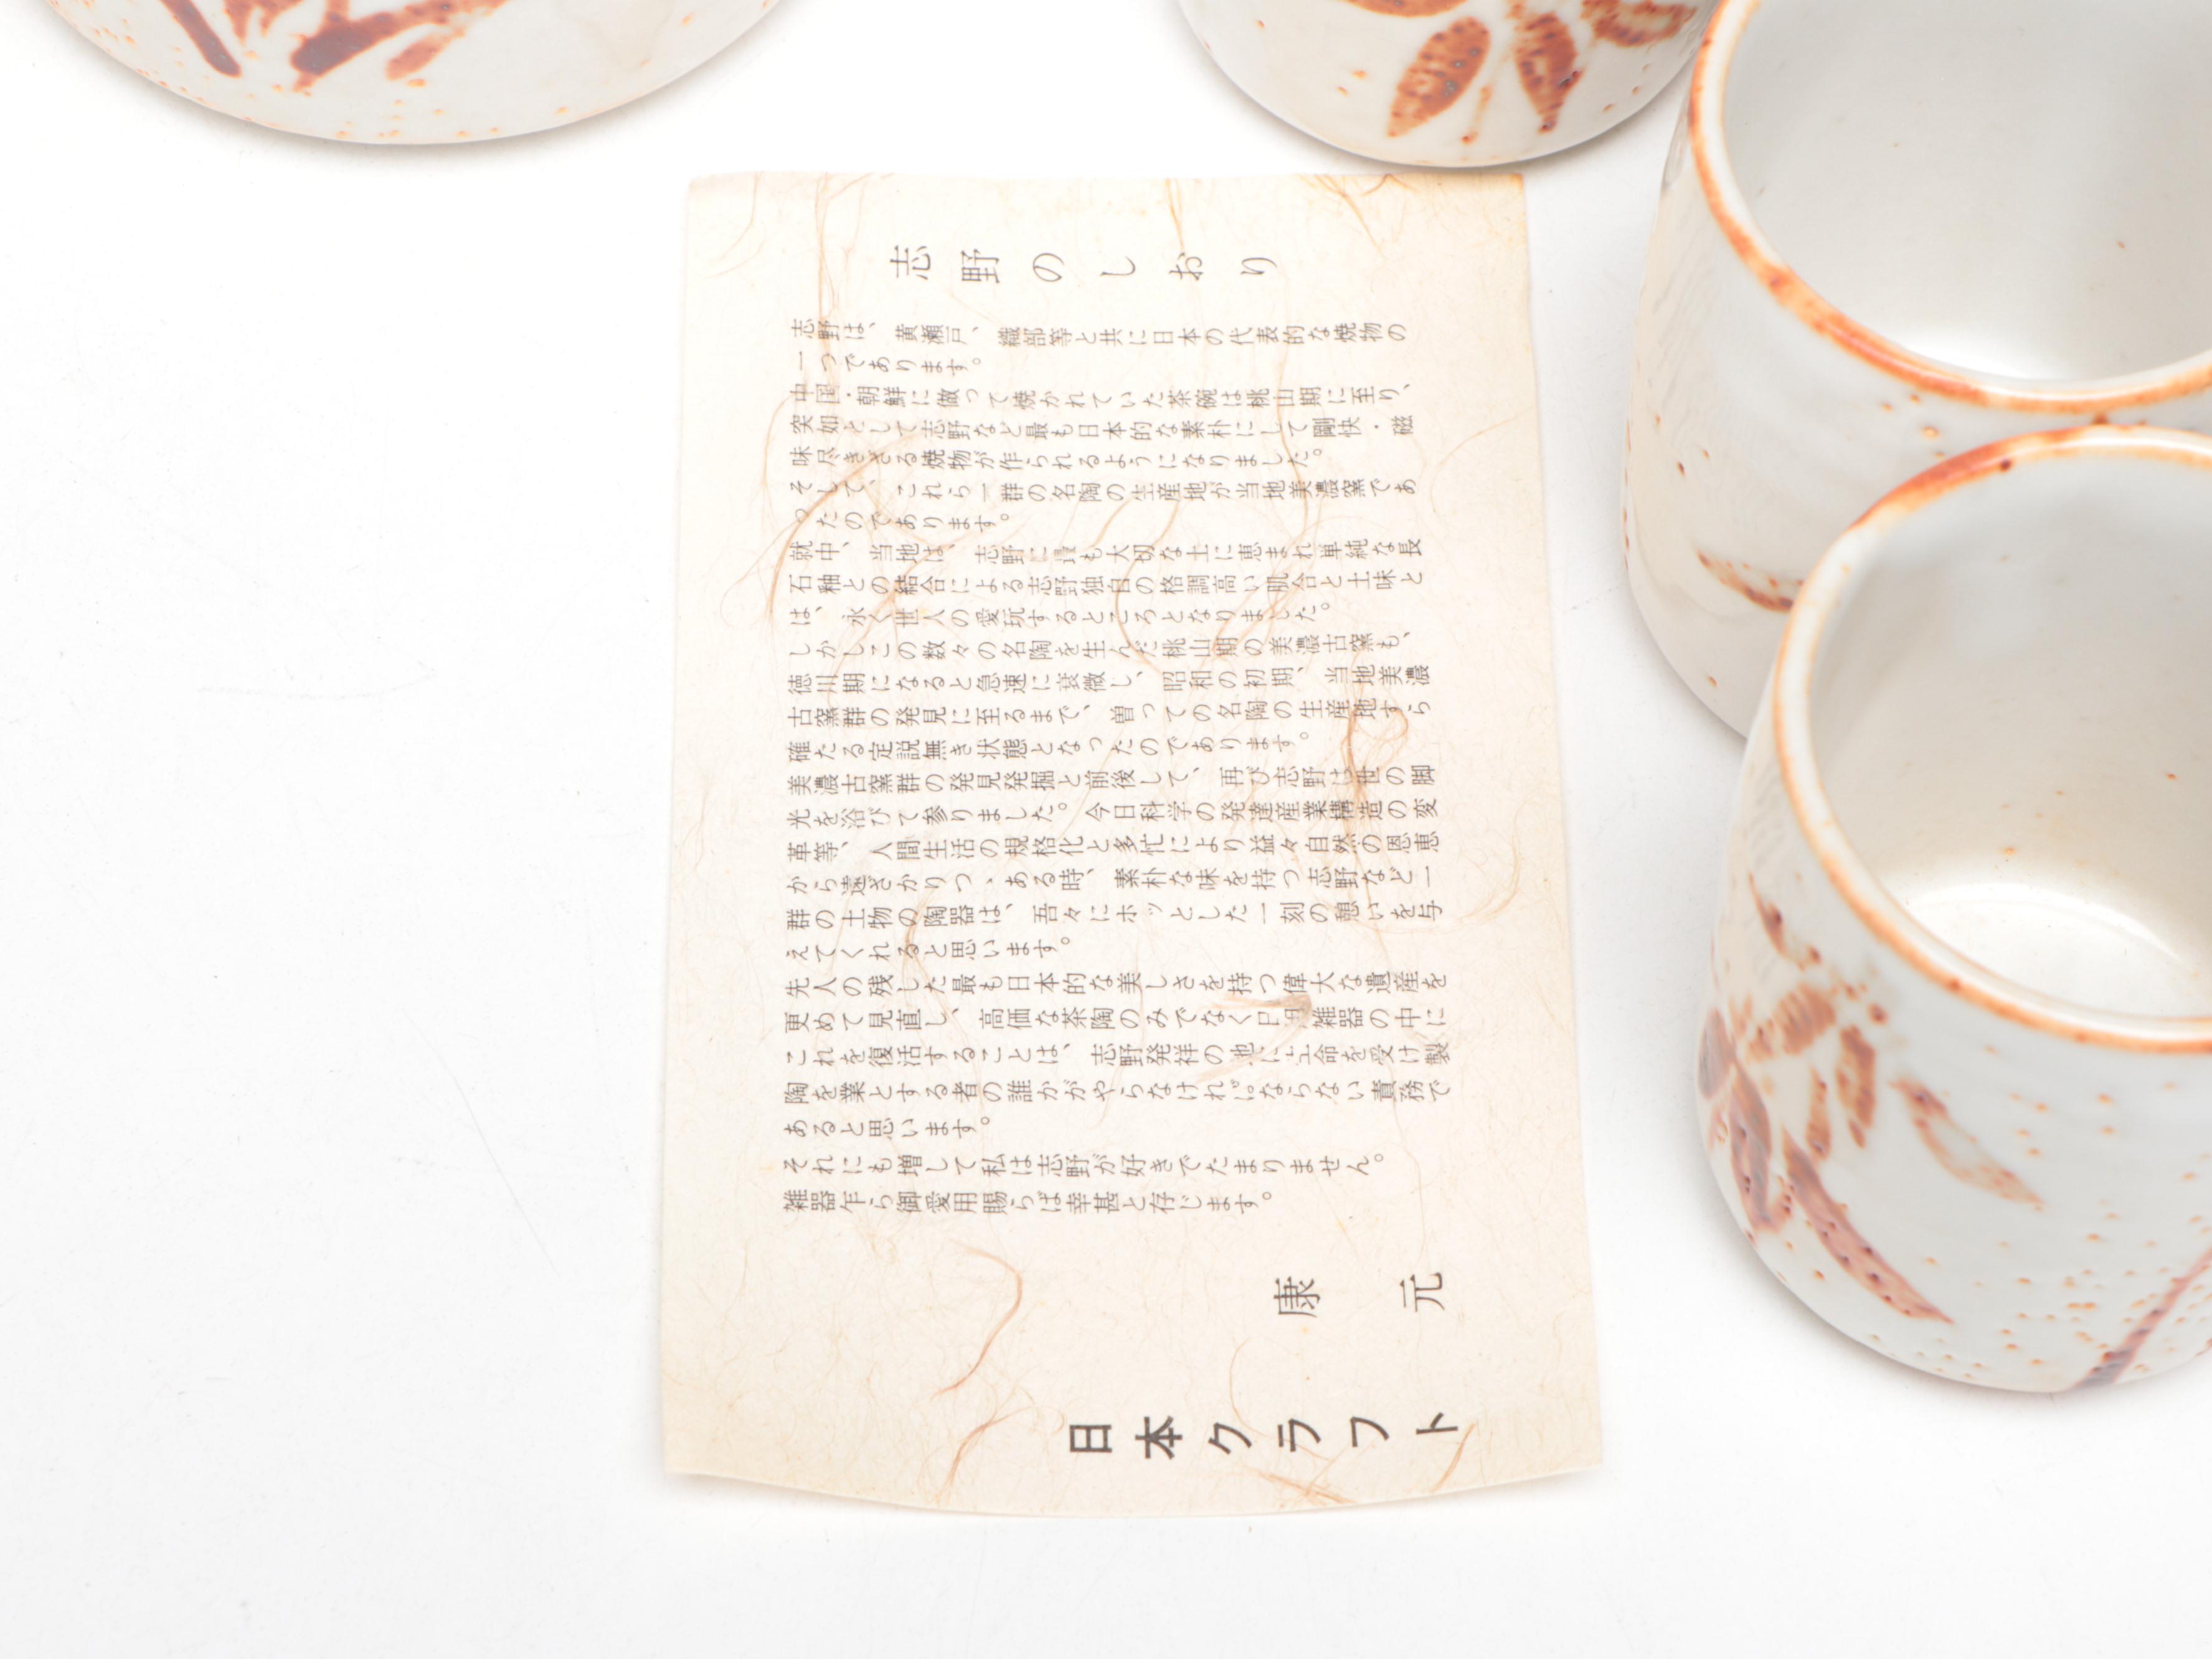 志野のしおり
志野は、黄瀬戸、織部等と共に日本の代表的な焼物の
一つであります。
中国・朝鮮に倣って焼かれていた茶碗は桃山期に至り、
突如として志野など最も日本的な素朴にして剛快・磁
味尽きざる焼物が作られるようになりました。
そして、これら一群の名陶の生産地が当地美濃窯であ
ったのであります。
就中、当地は、志野に最も大切な土に恵まれ単純な長
石釉との結合による志野独自の格調高い肌合と土味と
は、永く世人の愛玩するところとなりました。
しかしこの数々の名陶を生んだ桃山期の美濃古窯も、
徳川期になると急速に衰微し、昭和の初期、当地美濃
古窯群の発見に至るまで、曽っての名陶の生産地すら
確たる定説無き状態となったのであります。
美濃古窯群の発見発掘と前後して、再び志野は世の脚
光を浴びて参りました。今日科学の発達産業構造の変
革等、人間生活の規格化と多忙により益々自然の恩恵
から遠ざかりつゝある時、素朴な味を持つ志野など一
群の土物の陶器は、吾々にホッとした一刻の憩いを与
えてくれると思います。
先人の残した最も日本的な美しさを持つ偉大な遺産を
更めて見直し、高価な茶陶のみでなく日用雑器の中に
これを復活することは、志野発祥の地に生命を受け製
陶を業とする者の誰かがやらなければならない責務で
あると思います。
それにも増して私は志野が好きでたまりません。
雑器乍ら御愛用賜らば幸甚と存じます。
康元
日本クラフト